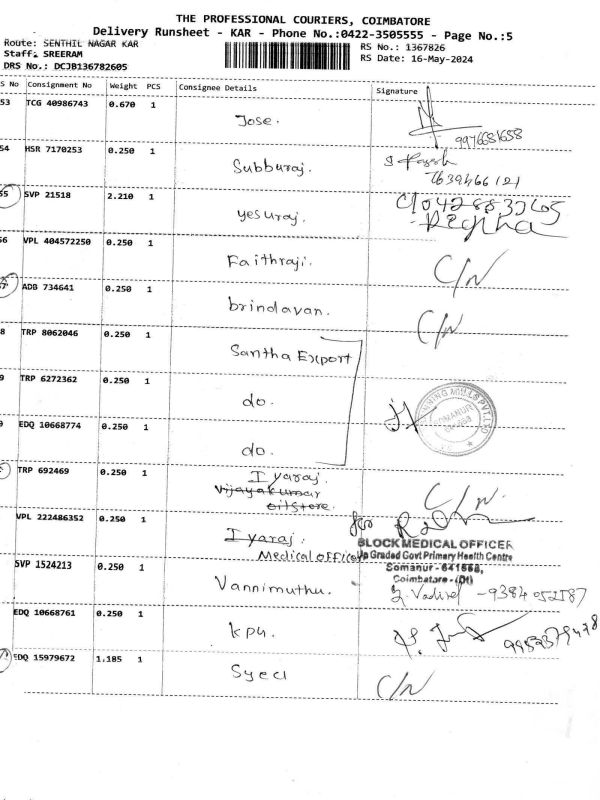 THE PROFESSIONAL COURIERS, COIMBATORE
Delivery Runsheet - KAR - Phone No.:0422-3505555 - Page No.:5
Route: SENTHIL NAGAR KAR
Staff: SREERAM
DRS No.: DCJB136782605
RS No.: 1367826
RS Date: 16-May-2024
S No Consignment No Weight PCS Consignee Details Signature
53 TCG 40986743 0.670 1 Jose.
54 HSR 7170253 0.250 1 Subburaj.
7639466121
55 SVP 21518 2.210 1 yesuraj.
56 VPL 404572250 0.250 1 Faithraji. C/N
ADB 734641 0.250 1 brindavan. C/N
8 TRP 8062046 0.250 1 Santha Export
9 TRP 6272362 0.250 1 do.
EDQ 10668774 0.250 1 do.
TRP 692469 0.250 1 Iyaraj. C/N.
Vijayakumar
oilstore.
VPL 222486352 0.250 1 Iyaraj.
Medical officer
for
BLOCK MEDICAL OFFICER
Up Graded Govt Primary Health Centre
Somanur - 641668,
Coimbatore - (Dt)
SVP 1524213 0.250 1 Vannimuthu. - 9384052187
EDQ 10668761 0.250 1 kpu.
EDQ 15979672 1.185 1 Syed C/N